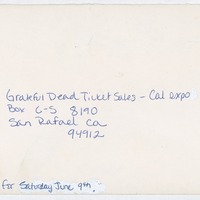 Grateful Dead Ticket Sales - Cal expo
Box C-S 8190
San Rafael Ca
94912
for Saturday June 9th,